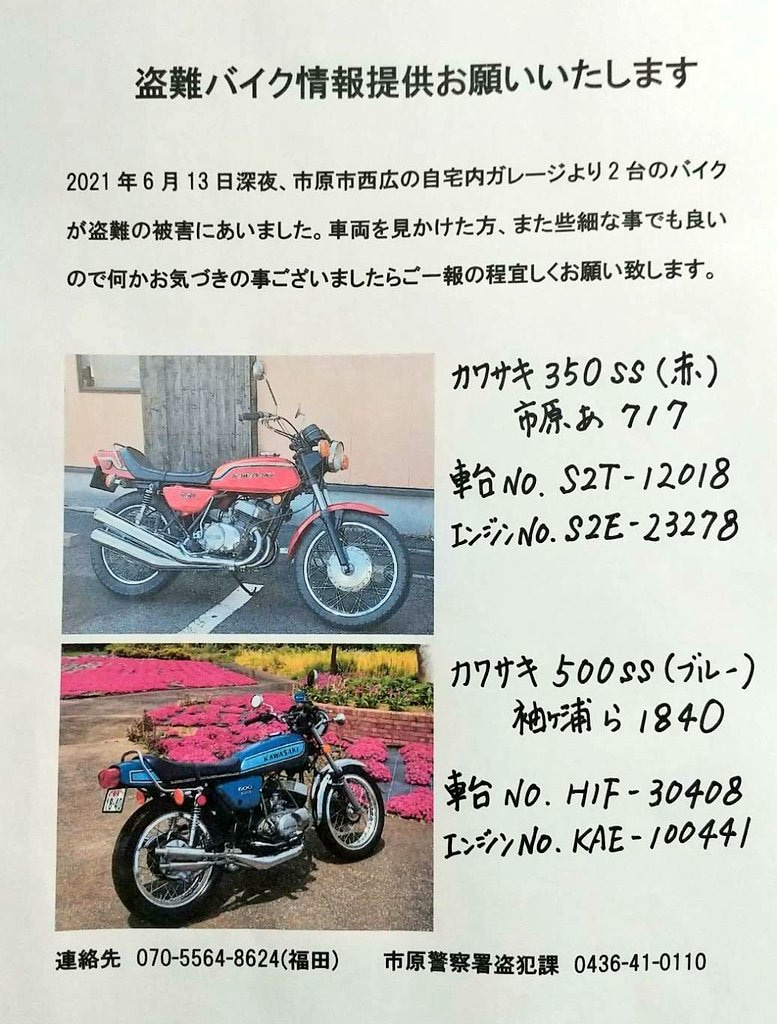 盗難バイク情報提供お願いいたします
2021年6月13日深夜、市原市西広の自宅内ガレージより2台のバイク
が盗難の被害にあいました。車両を見かけた方、また些細な事でも良い
ので何かお気づきの事ございましたらご一報の程宜しくお願い致します。
カワサキ 350SS(赤)
市原 あ 717
車台NO. S2T-12018
エンジンNO. S2E-23278
KAWASAKI
カワサキ 500SS(ブルー)
袖ヶ浦 ら 1840
車台 NO. H1F-30408
エンジンNO. KAE-100441
KAWASAKI
500
18-40
連絡先 070-5564-8624(福田) 市原警察署盗犯課 0436-41-0110